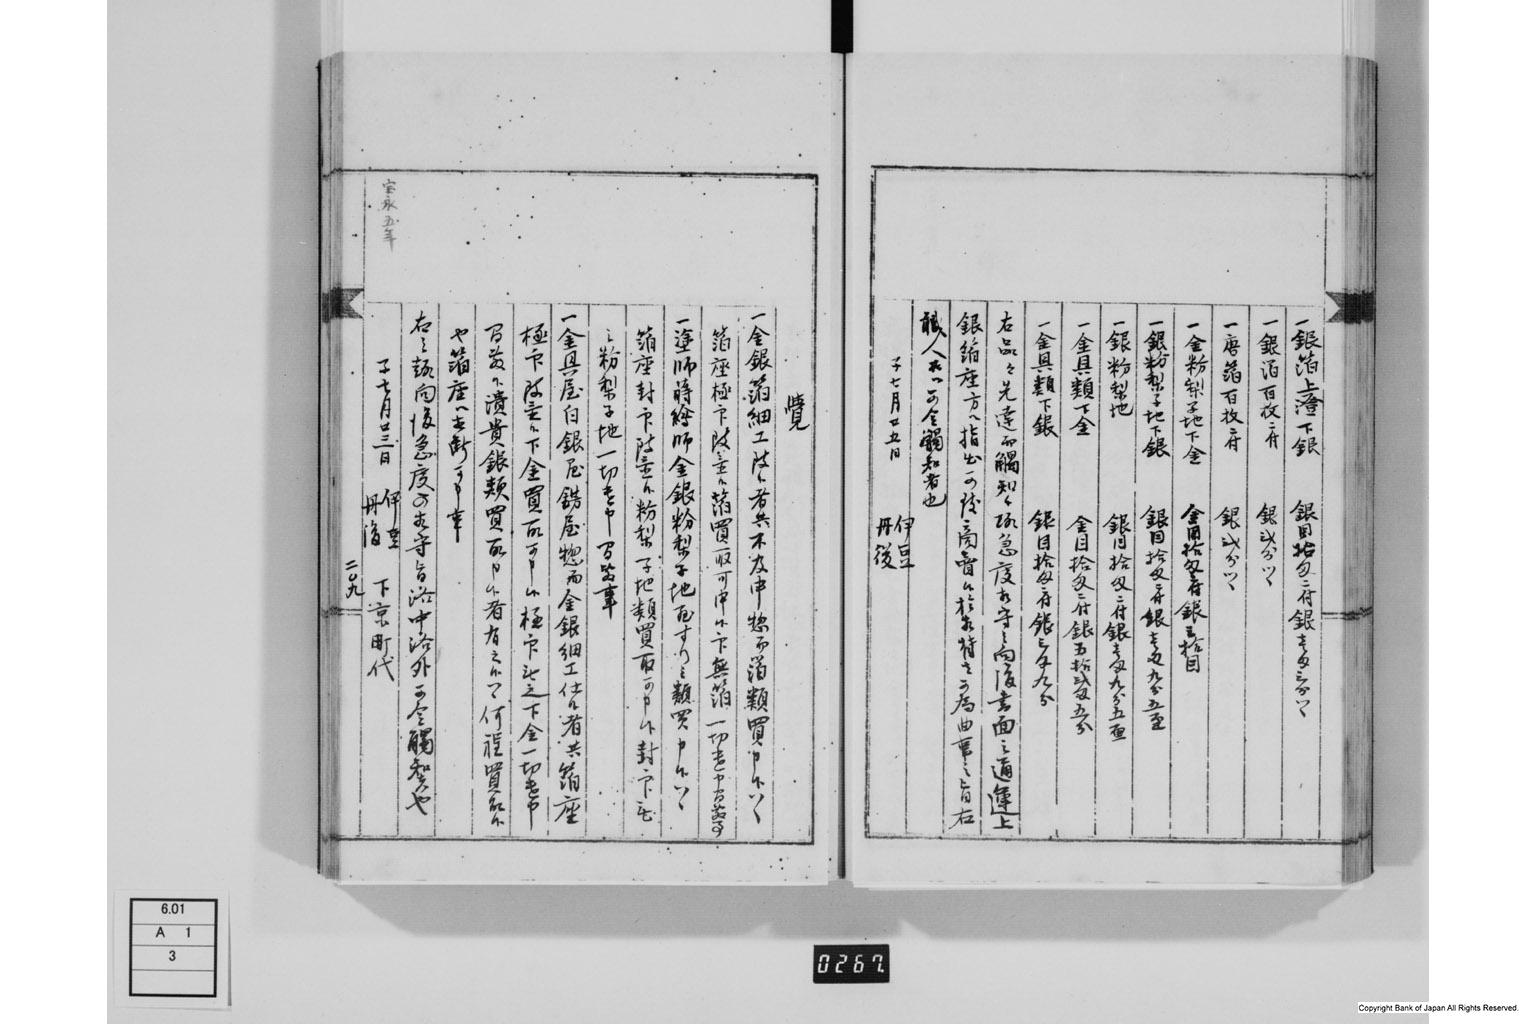 一銀箔上澄下銀 銀目拾匁ニ付銀壱匁三分ツヽ
一銀箔百枚ニ付 銀弐分ツヽ
一唐箔百枚ニ付 銀弐分ツヽ
一金粉梨子地下金 金目拾匁ニ付銀三拾目
一銀粉梨子地下銀 銀目拾匁ニ付銀壱匁九分五厘
一銀粉梨地 銀目拾匁ニ付銀壱匁九分五厘
一金具類下金 金目拾匁ニ付銀五拾弐匁五分
一金具類下銀 銀目拾匁ニ付銀三匁九分
右品々先達而觸知候通急度相守之向後書面之通運上
銀箔座方へ指出可致商賣候於相背者可為曲事之旨右
職人共へ可令觸知者也
子七月廿五日 伊豆
丹後
覺
一金銀箔細工致候者共不及申惣而箔類買申候ハヽ
箔座極印致 箔買取可申候印無箔一切
一塗師蒔繪師金銀粉梨子地 之類買申候ハヽ
箔座封印致 粉梨子地類買取可申候封印
之粉梨子地一切 事
一金具屋白銀屋錺屋惣而金銀細工仕候者共箔座
極印致 下金買取可申候極印無之下金一切
潰貴銀類買取申候者有之候ハヽ何程買取候
や箔座へ相斷可申事
右之趣向後急度可相守旨洛中洛外可令觸知者也
子七月廿三日 伊豆
丹後 下京町代
宝永五年
二〇九
6.01
A 1
3
0267
Copyright Bank of Japan All Rights Reserved.